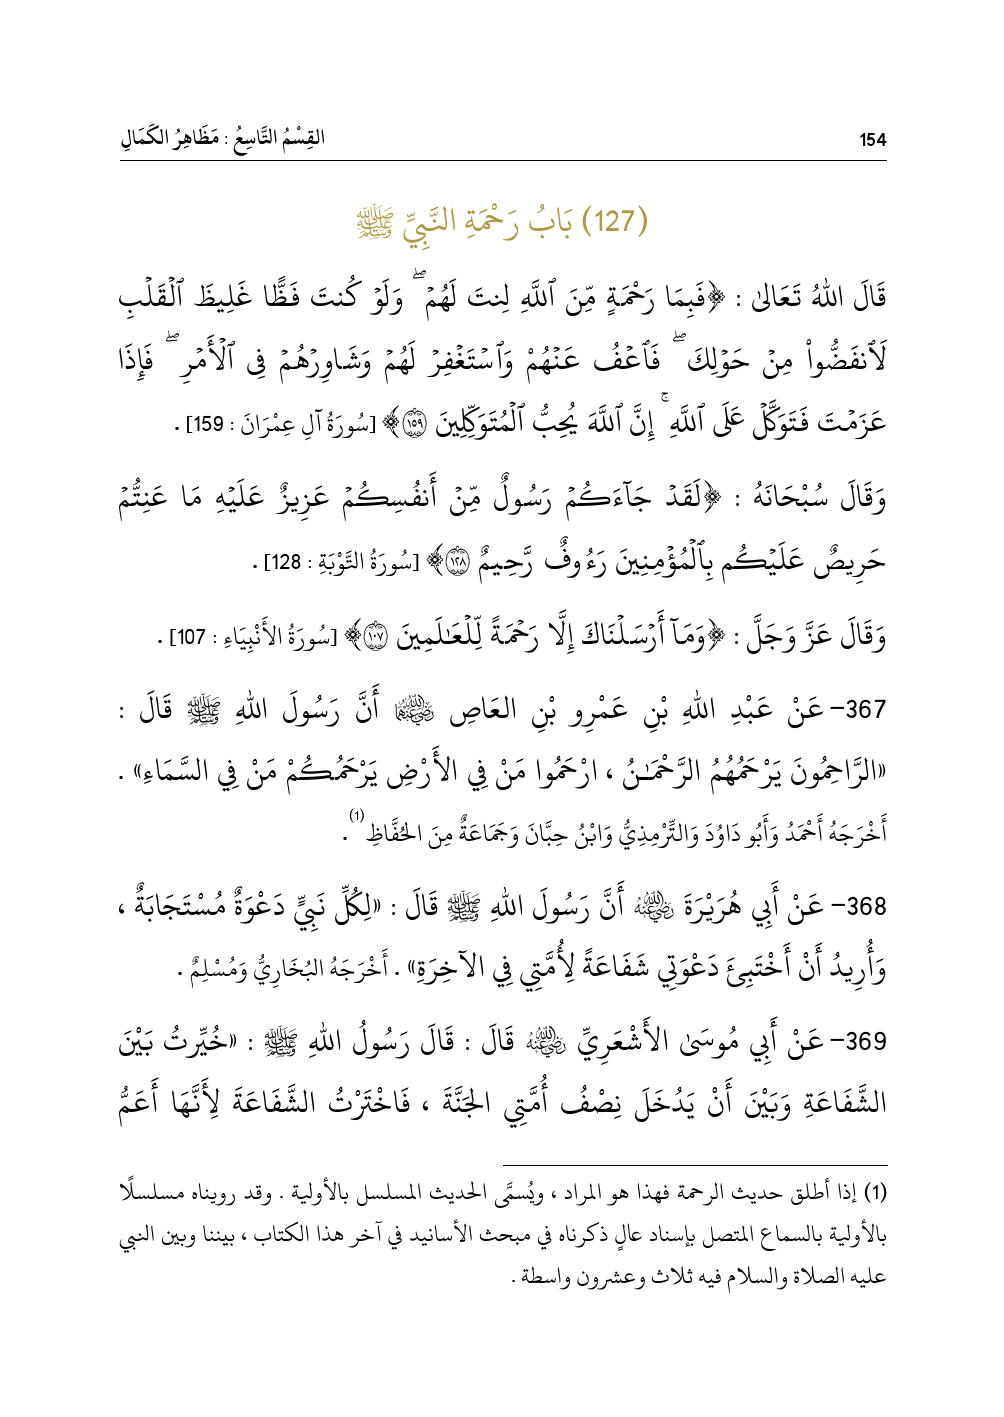 154
القِسْمُ التَّاسِعُ : مَظَاهِرُ الكَمَالِ
(127) بَابُ رَحْمَةِ النَّبِيِّ ﷺ
قَالَ اللهُ تَعَالىٰ : ﴿فَبِمَا رَحْمَةٍ مِّنَ ٱللَّهِ لِنتَ لَهُمْۖ وَلَوْ كُنتَ فَظًّا غَلِيظَ ٱلْقَلْبِ
لَٱنفَضُّواْ مِنْ حَوْلِكَۖ فَٱعْفُ عَنْهُمْ وَٱسْتَغْفِرْ لَهُمْ وَشَاوِرْهُمْ فِى ٱلْأَمْرِۖ فَإِذَا
عَزَمْتَ فَتَوَكَّلْ عَلَى ٱللَّهِۚ إِنَّ ٱللَّهَ يُحِبُّ ٱلْمُتَوَكِّلِينَ ١٥٩﴾ [سُورَةُ آلِ عِمْرَانَ : 159] .
وَقَالَ سُبْحَانَهُ : ﴿لَقَدْ جَآءَكُمْ رَسُولٌ مِّنْ أَنفُسِكُمْ عَزِيزٌ عَلَيْهِ مَا عَنِتُّمْ
حَرِيصٌ عَلَيْكُم بِٱلْمُؤْمِنِينَ رَءُوفٌ رَّحِيمٌ ١٢٨﴾ [سُورَةُ التَّوْبَةِ : 128] .
وَقَالَ عَزَّ وَجَلَّ : ﴿وَمَآ أَرْسَلْنَاكَ إِلَّا رَحْمَةً لِّلْعَـٰلَمِينَ ١٠٧﴾ [سُورَةُ الأَنْبِيَاءِ : 107] .
367– عَنْ عَبْدِ اللهِ بْنِ عَمْرِو بْنِ العَاصِ رضي الله عنهما أَنَّ رَسُولَ اللهِ ﷺ قَالَ :
«الرَّاحِمُونَ يَرْحَمُهُمُ الرَّحْمَـٰنُ ، ارْحَمُوا مَنْ فِي الأَرْضِ يَرْحَمُكُمْ مَنْ فِي السَّمَاءِ» .
أَخْرَجَهُ أَحْمَدُ وَأَبُو دَاوُدَ وَالتِّرْمِذِيُّ وَابْنُ حِبَّانَ وَجَمَاعَةٌ مِنَ الحُفَّاظِ(1) .
368– عَنْ أَبِي هُرَيْرَةَ رضي الله عنه أَنَّ رَسُولَ اللهِ ﷺ قَالَ : «لِكُلِّ نَبِيٍّ دَعْوَةٌ مُسْتَجَابَةٌ ،
وَأُرِيدُ أَنْ أَخْتَبِئَ دَعْوَتِي شَفَاعَةً لِأُمَّتِي فِي الآخِرَةِ» . أَخْرَجَهُ البُخَارِيُّ وَمُسْلِمٌ .
369– عَنْ أَبِي مُوسَىٰ الأَشْعَرِيِّ رضي الله عنه قَالَ : قَالَ رَسُولُ اللهِ ﷺ : «خُيِّرتُ بَيْنَ
الشَّفَاعَةِ وَبَيْنَ أَنْ يَدْخَلَ نِصْفُ أُمَّتِي الجَنَّةَ ، فَاخْتَرْتُ الشَّفَاعَةَ لِأَنَّهَا أَعَمُّ
(1) إذا أطلق حديث الرحمة فهذا هو المراد ، ويُسمَّى الحديث المسلسل بالأولية . وقد رويناه مسلسلًا
بالأولية بالسماع المتصل بإسناد عالٍ ذكرناه في مبحث الأسانيد في آخر هذا الكتاب ، بيننا وبين النبي
عليه الصلاة والسلام فيه ثلاث وعشرون واسطة .